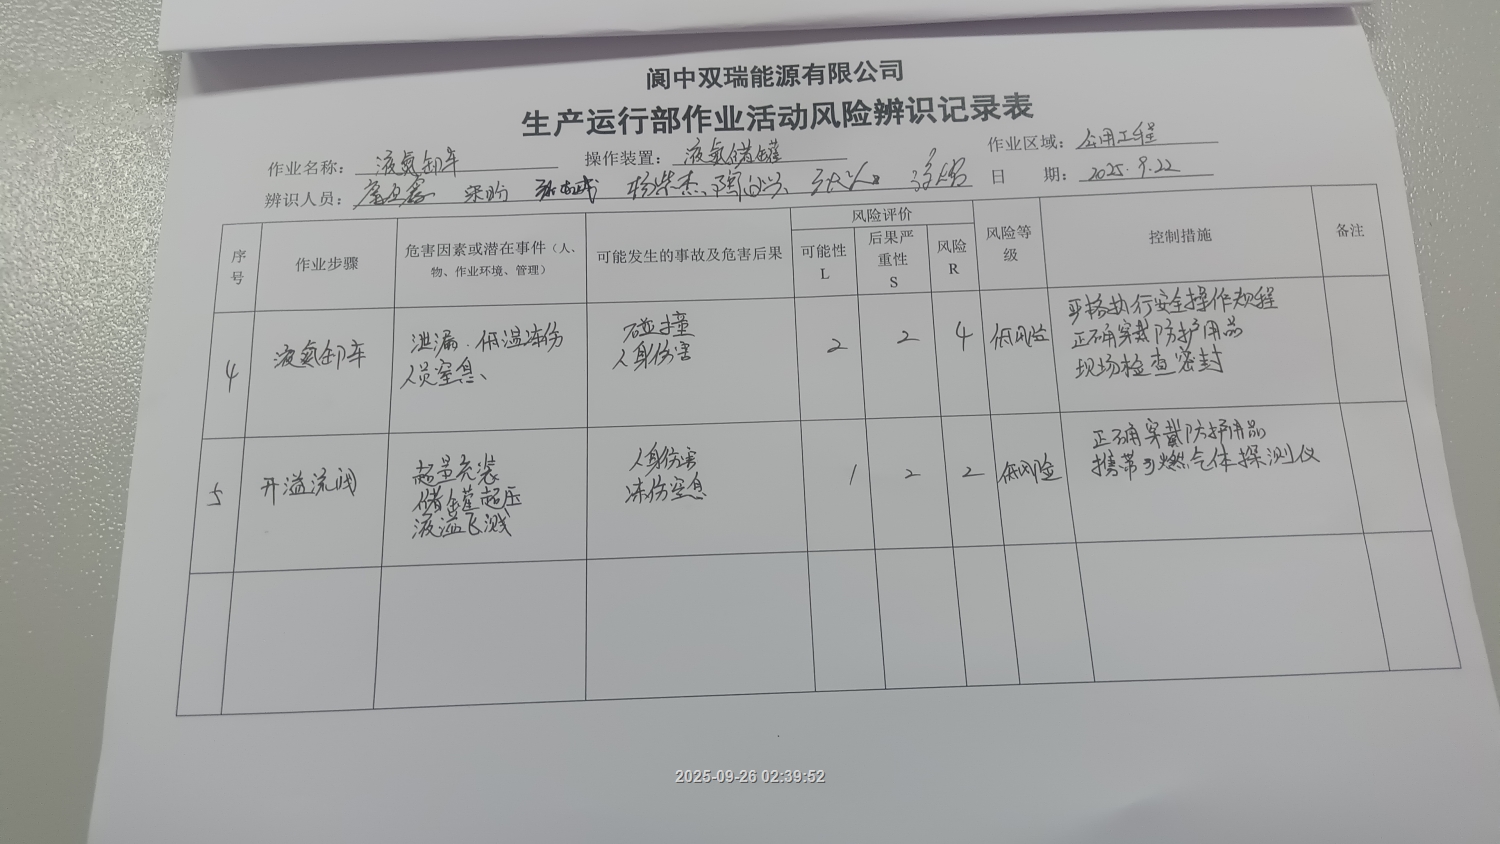 阆中双瑞能源有限公司
生产运行部作业活动风险辨识记录表
作业名称： 液氮卸车 操作装置： 液氮储罐 作业区域： 公用工程
辨识人员： 梁盼 杨崇杰、 日 期： 2025.9.22
序号 作业步骤 危害因素或潜在事件（人、物、作业环境、管理） 可能发生的事故及危害后果 风险评价 风险等级 控制措施 备注
可能性 L 后果严重性 S 风险 R
4 液氮卸车 泄漏．低温冻伤 碰撞 2 2 4 低风险 严格执行安全操作规程
人员窒息、 人身伤害 正确穿戴防护用品
现场检查密封
5 开溢流阀 超量充装 人身伤害 1 2 2 低风险 正确穿戴防护用品
储罐超压 冻伤窒息 携带可燃气体探测仪
液溢飞溅
2025-09-26 02:39:52